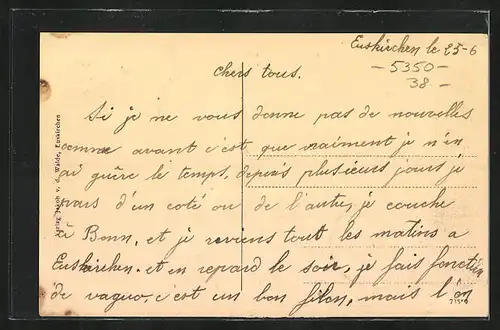 Euskirchen le 25-6
-5350-
38.-
chers tous.
Si je ne vous donne pas de nouvelles
comme avant c'est que vraiment je n'en
ai guère le temps, depuis plusieurs jours je
vais d'un coté ou de l'autre, je couche
à Bonn, et je reviens tout les matins a
Euskirchen et en repard le soir, je fais fonction
de vaguo, c'est un bon filon, mais l'on
Verlag Jacob v. d. Walde, Euskirchen